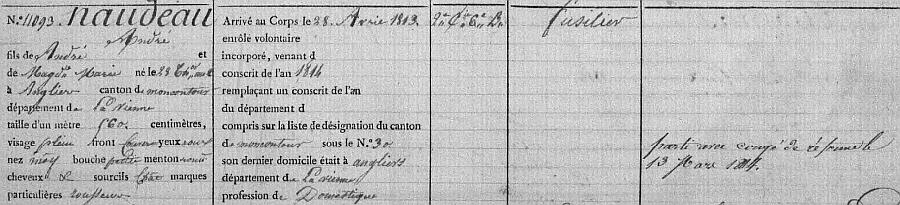 N.° 11093. Naudeau
André
fils de André et
de Magd.ne Marie né le 28
à Anglier canton de moncontour
département de La vienne
taille d'un mètre 560 centimètres,
visage plein front couvert yeux roux
nez moy bouche petite menton rond
cheveux & sourcils Chat marques
particulières rousseur
Arrivé au Corps le 28 Avril 1813
enrôle volontaire
incorporé, venant d
conscrit de l'an 1814
remplaçant un conscrit de l'an
du département d
compris sur la liste de désignation du canton
de moncontour sous le N.° 30
son dernier domicile était à angliers
département de La vienne
profession de Domestique
2.e C.ie 6.e B.on
fusilier
parti avec congé de réforme le
13 Mars 1814.